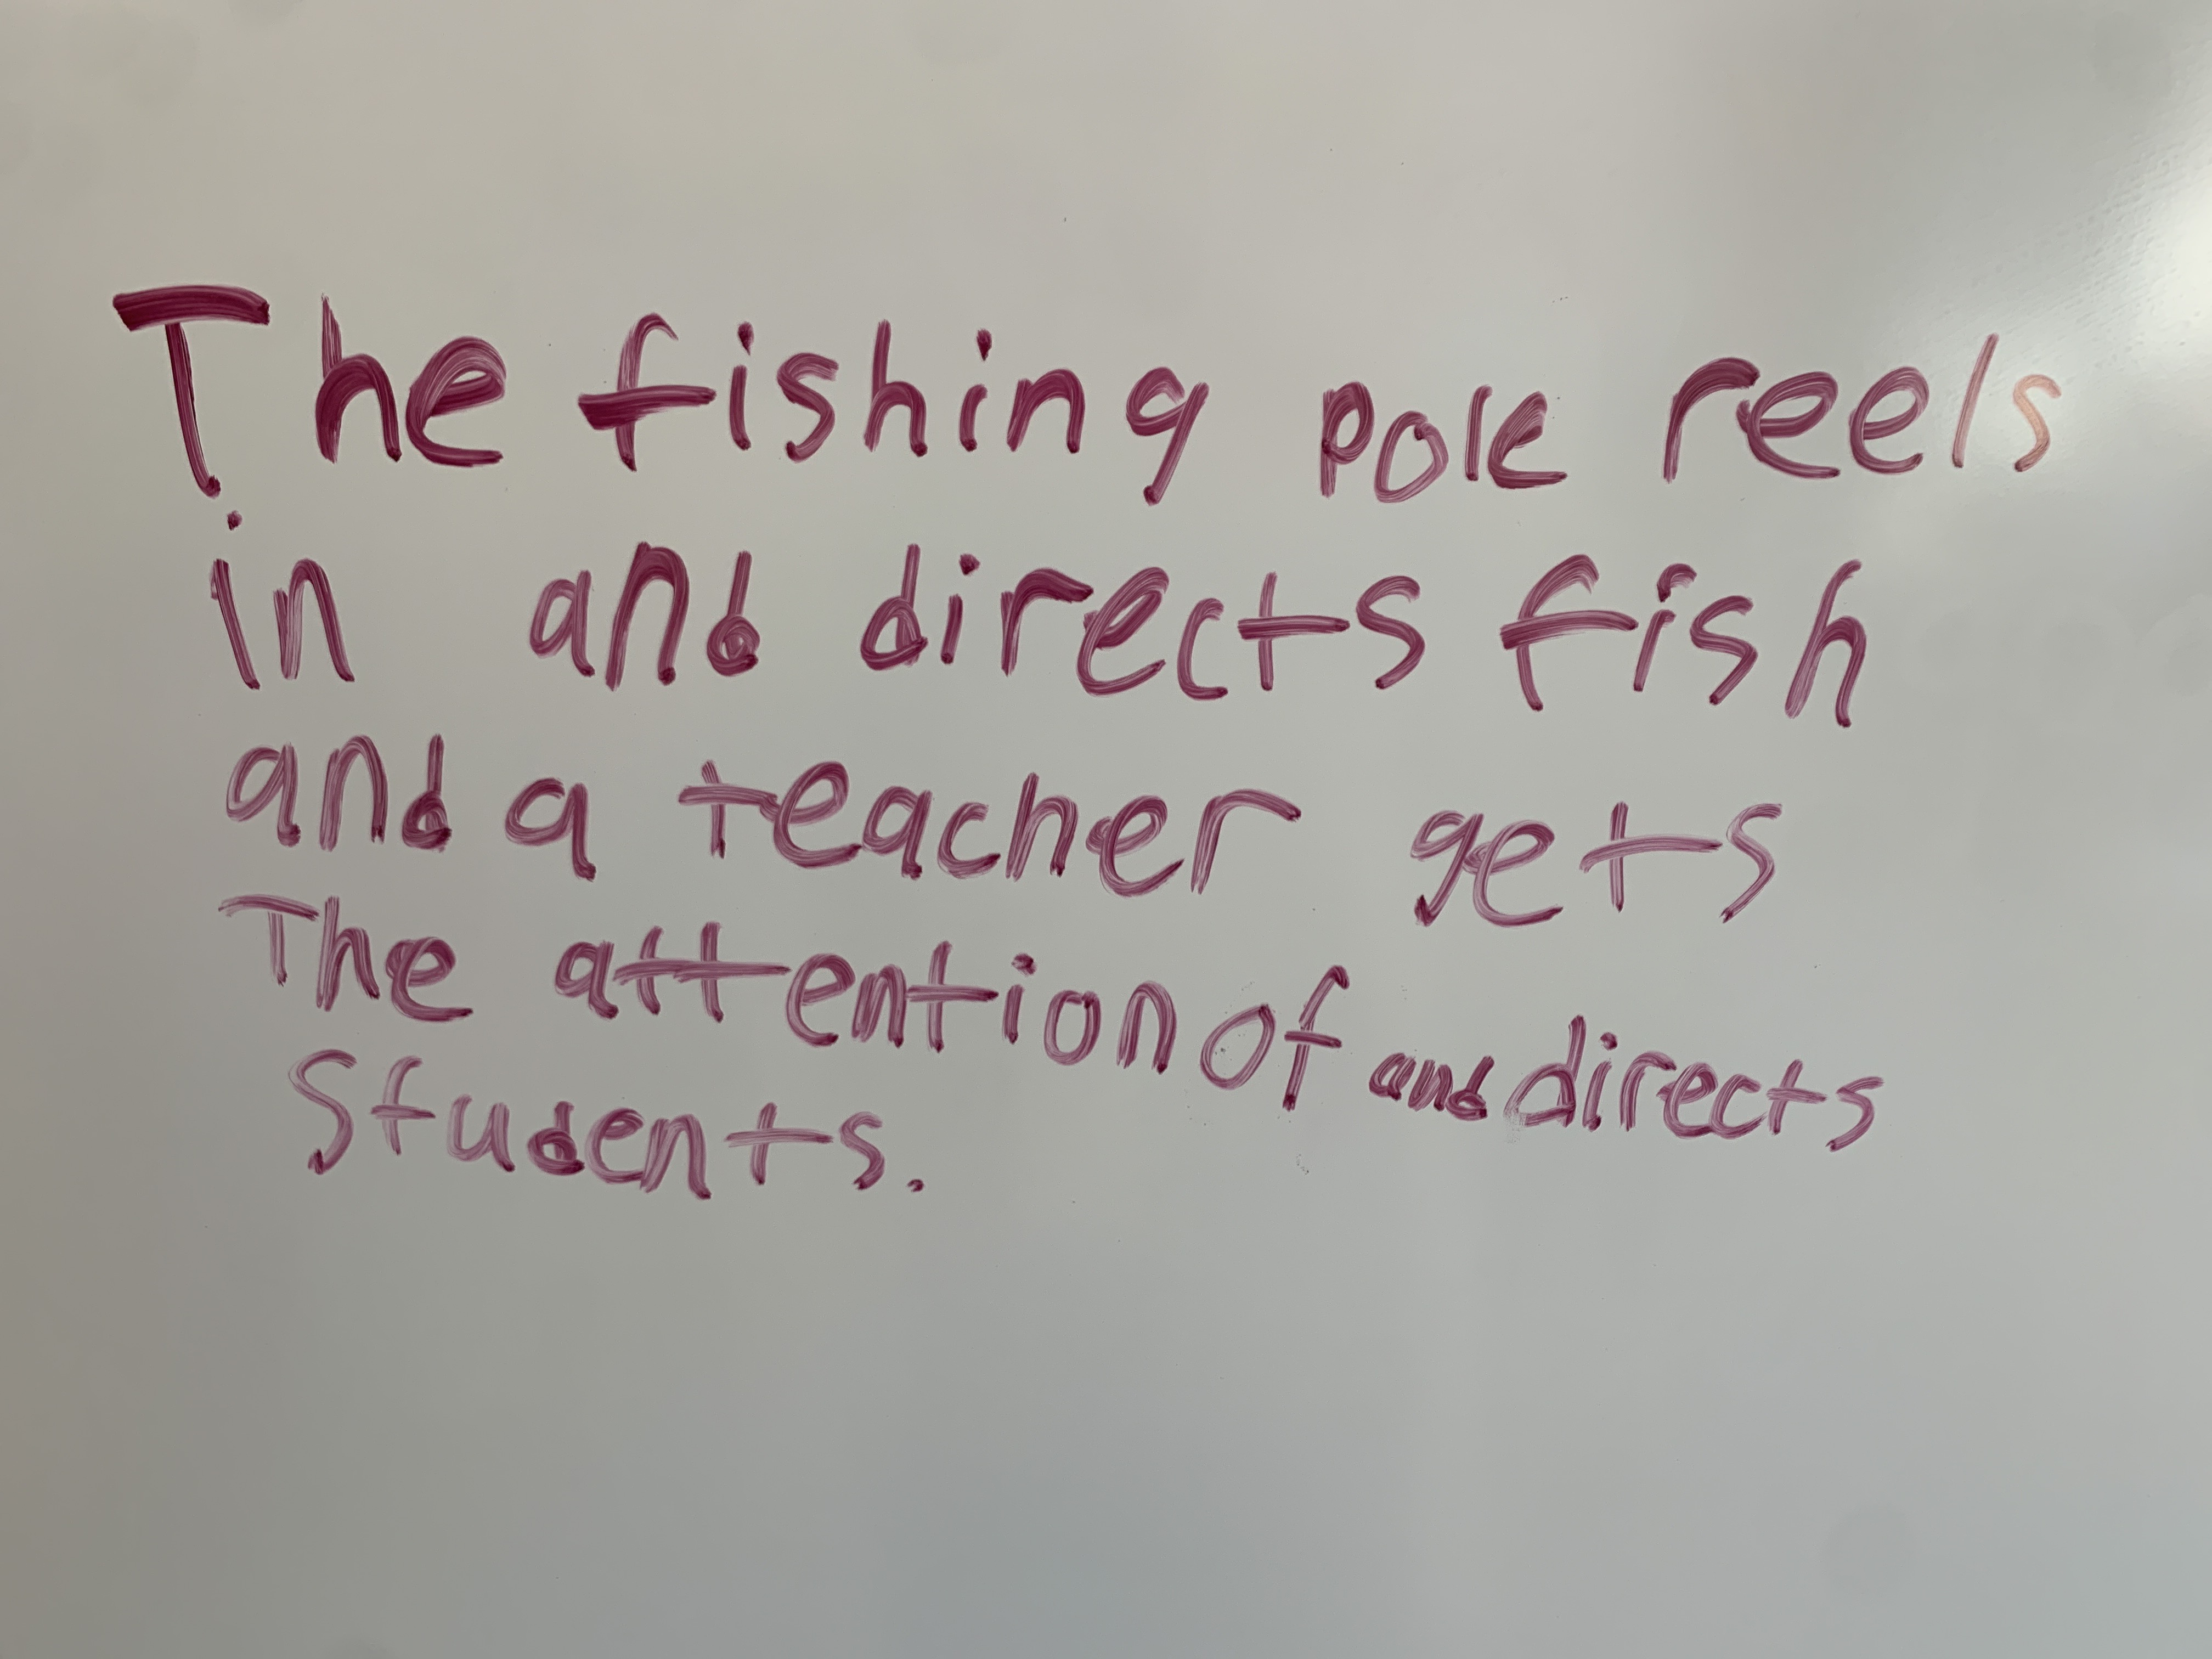 The fishing pole reels
in and directs fish
and a teacher gets
The attention of and directs
Students.